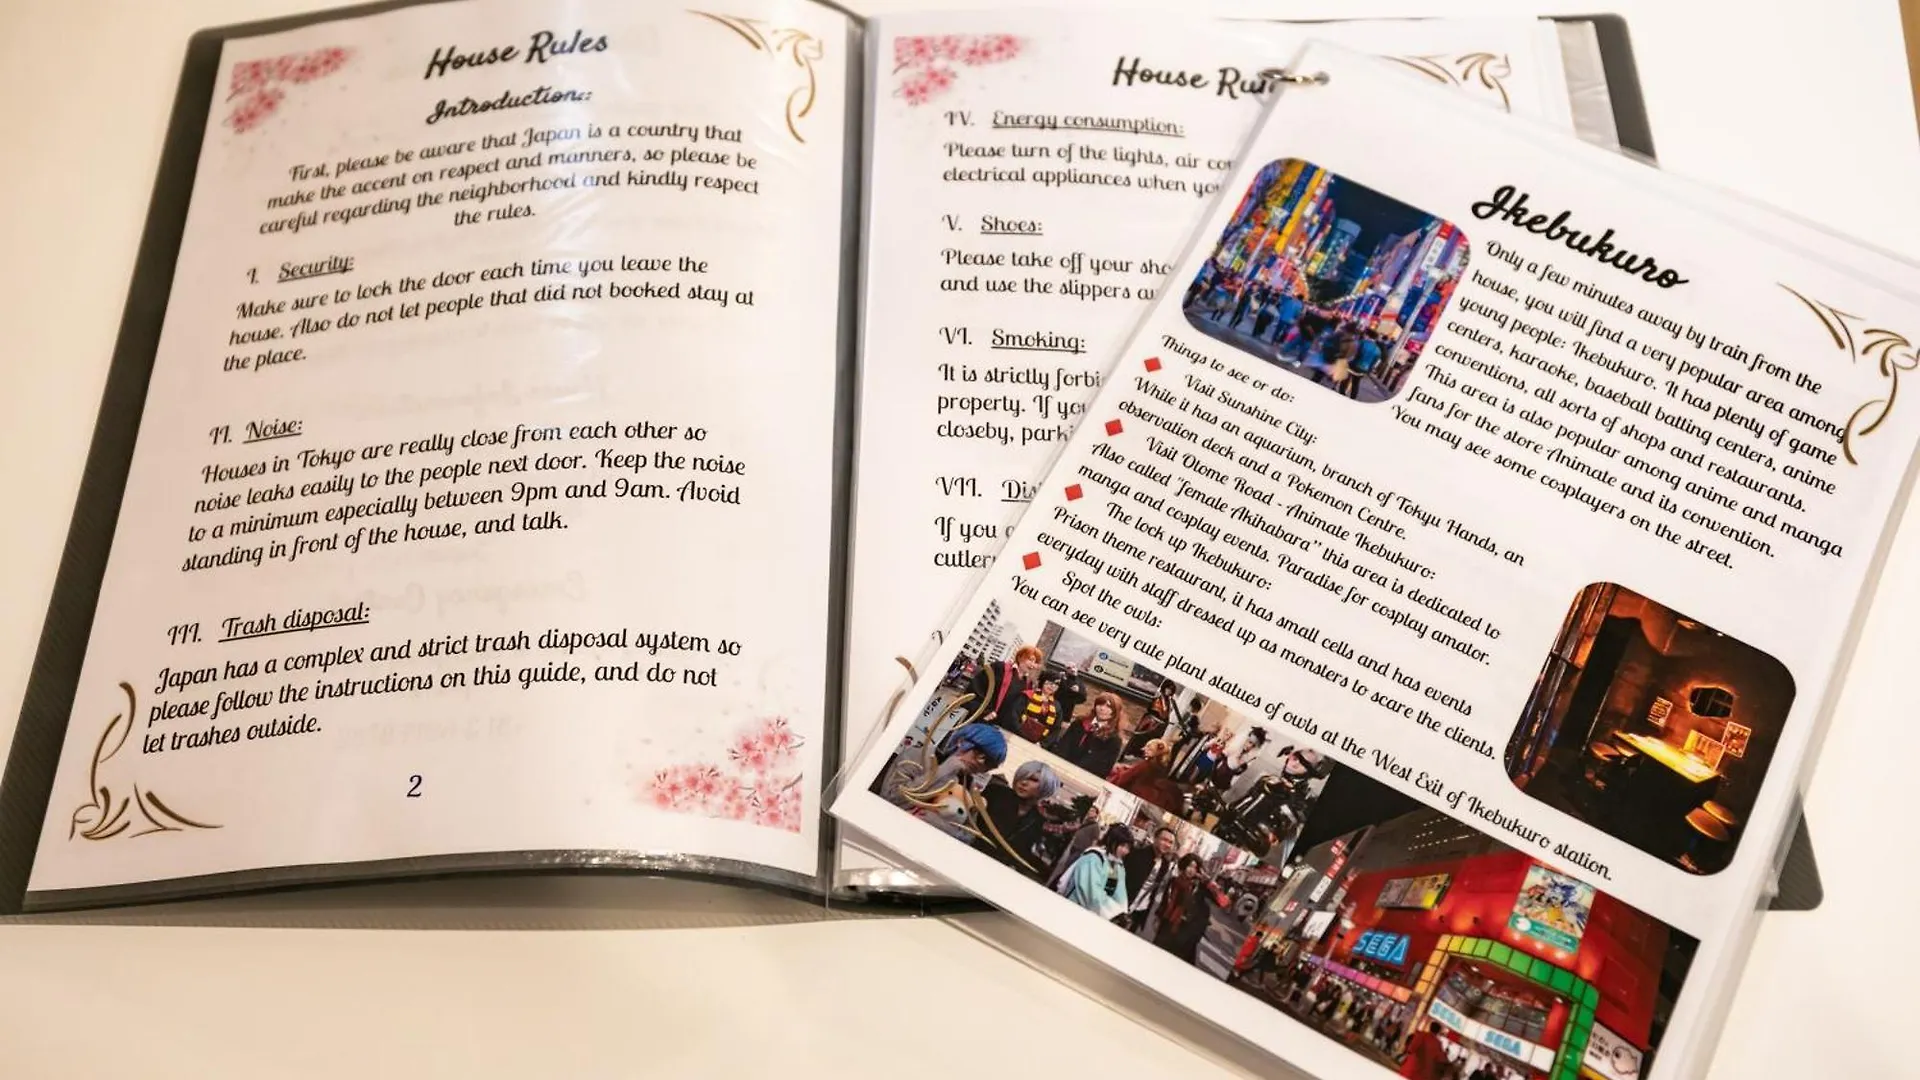 House Rules
Introduction::
First, please be aware that Japan is a country that
make the accent on respect and manners, so please be
careful regarding the neighborhood and kindly respect
the rules.
I. Security:
Make sure to lock the door each time you leave the
house. Also do not let people that did not booked stay at
the place.
II. Noise:
Houses in Tokyo are really close from each other so
noise leaks easily to the people next door. Keep the noise
to a minimum especially between 9pm and 9am. Avoid
standing in front of the house, and talk.
III. Trash disposal:
Japan has a complex and strict trash disposal system so
please follow the instructions on this guide, and do not
let trashes outside.
2
House Ru
IV. Energy consumption:
Please turn of the lights, air con
electrical appliances when you
V. Shoes:
Please take off your sho
and use the slippers
VI. Smoking:
It is strictly forbi
property. If you
closeby, parki
VII. Dis
If you
cutler
Ikebukuro
Only a few minutes away by train from the
house, you will find a very popular area among
young people: Ikebukuro. It has plenty of game
centers, karaoke, baseball batting centers, anime
conventions, all sorts of shops and restaurants.
This area is also popular among anime and manga
fans for the store Animate and its convention.
You may see some cosplayers on the street.
Things to see or do:
Visit Sunshine City:
While it has an aquarium, branch of Tokyu Hands, an
observation deck and a Pokemon Centre.
Visit Otome Road - Animate Ikebukuro:
Also called "female Akihabara" this area is dedicated to
manga and cosplay events. Paradise for cosplay amator.
The lock up Ikebukuro:
Prison theme restaurant, it has small cells and has events
everyday with staff dressed up as monsters to scare the clients.
Spot the owls:
You can see very cute plant statues of owls at the West Exit of Ikebukuro station.
SEGA
SEGA
SEGA